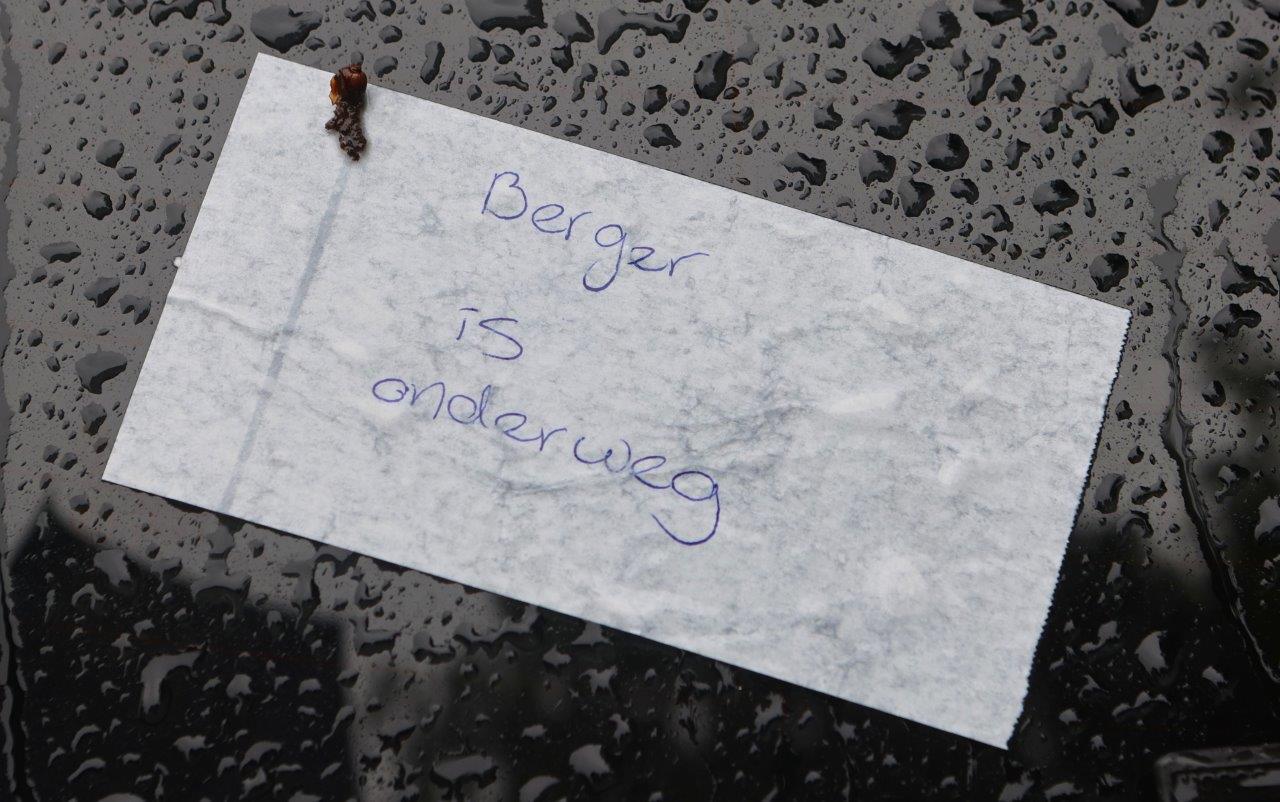 Berger
is
onderweg